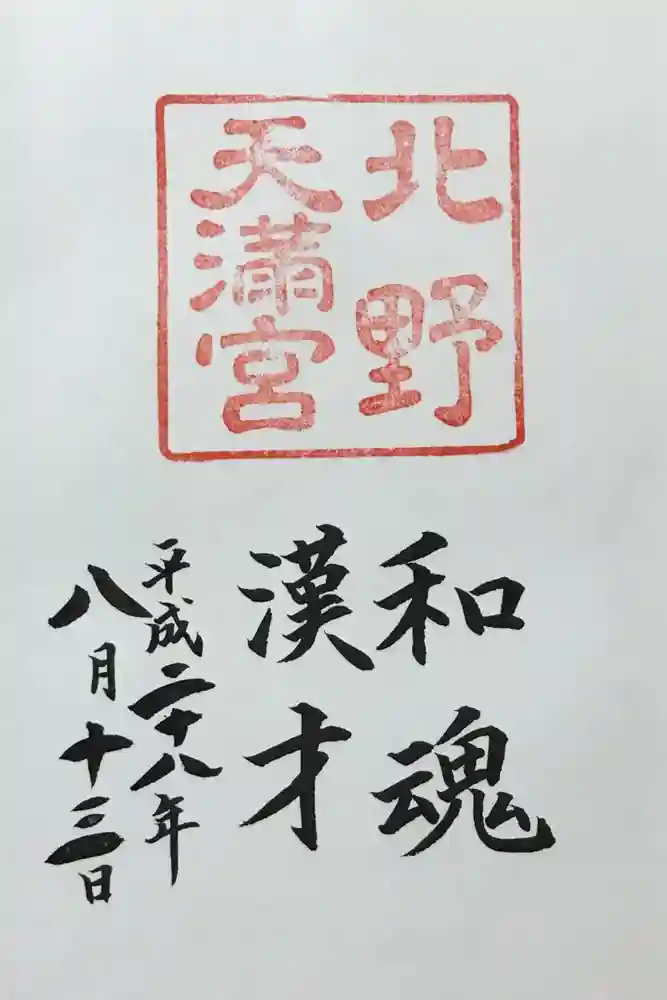 北野
天滿宮
和魂
漢才
平成二十八年
八月十三日